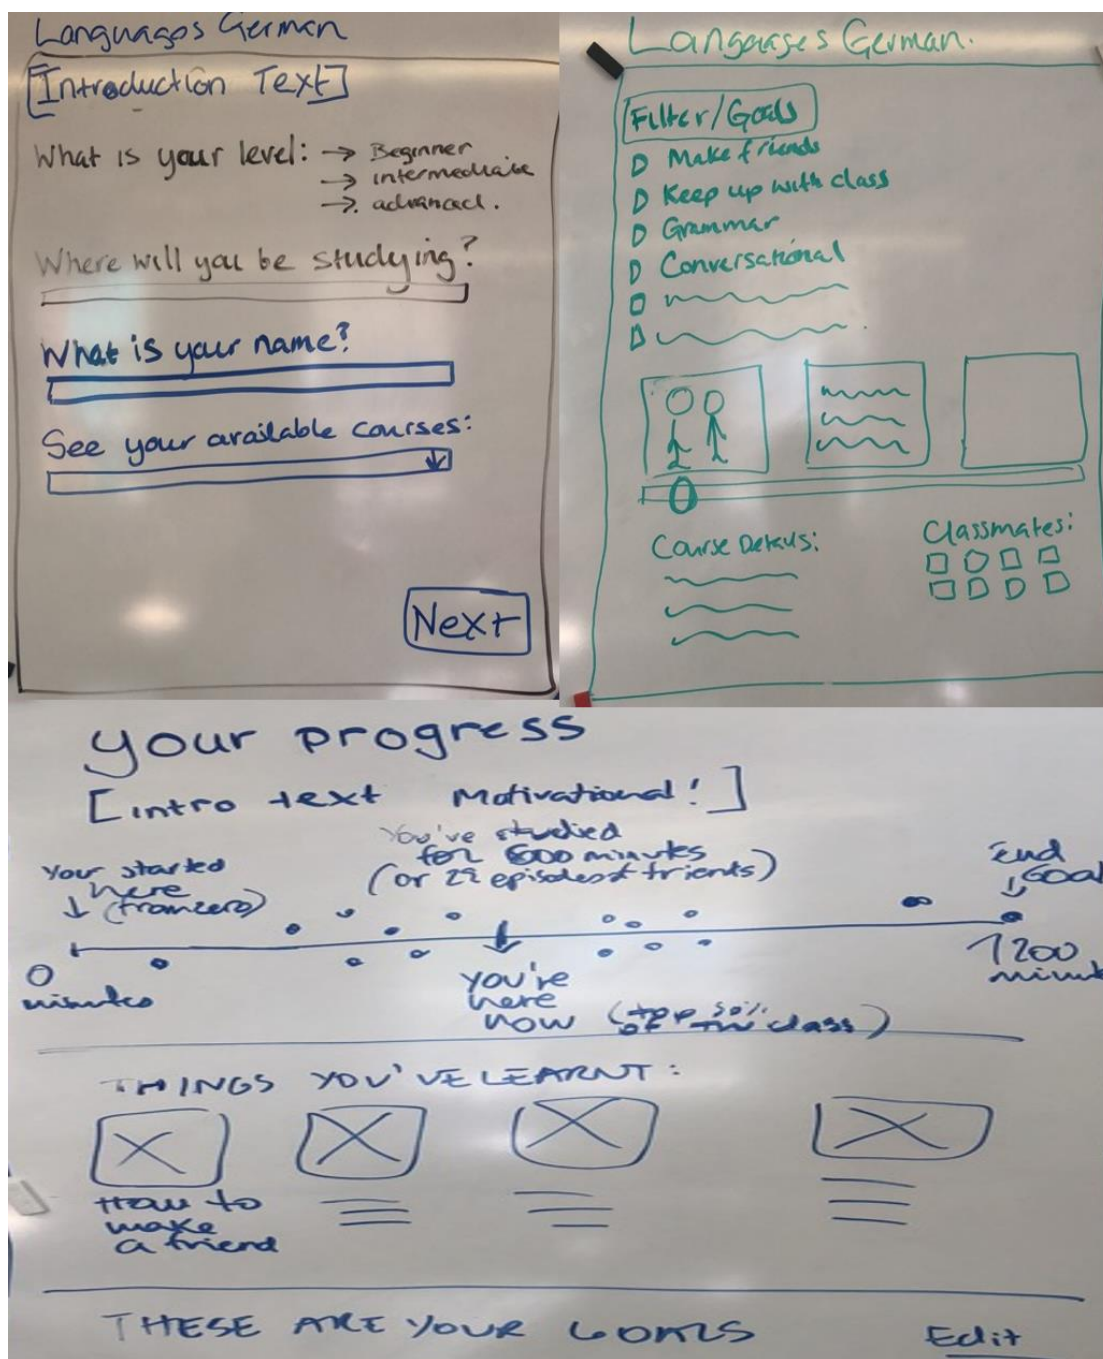 Languages German
[Introduction Text]
What is your level: → Beginner
→ intermediate
→. advanced.
Where will you be studying?
What is your name?
See your available courses:
Next
Languages German.
Filter/Goals
Make friends
Keep up with class
Grammar
Conversational
Course Details:
Classmates:
your progress
[intro text Motivational!]
You've studied
for 600 minutes
(or 29 episodes of friends)
Your started
here
(from zero)
End
Goal
0
minutes
you're
here
now (top 50%
of the class)
1200
minutes
THINGS YOU'VE LEARNT:
How to
make
a friend
THESE ARE YOUR GOALS
Edit